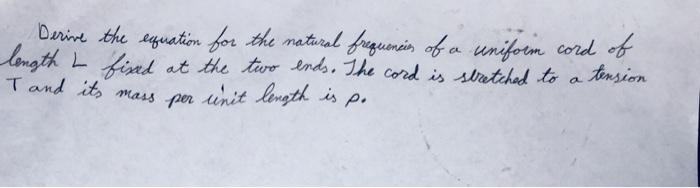 Derive the equation for the natural frequencies of a uniform cord of
length L fixed at the two ends. The cord is stretched to a tension
T and its mass per unit length is ρ.